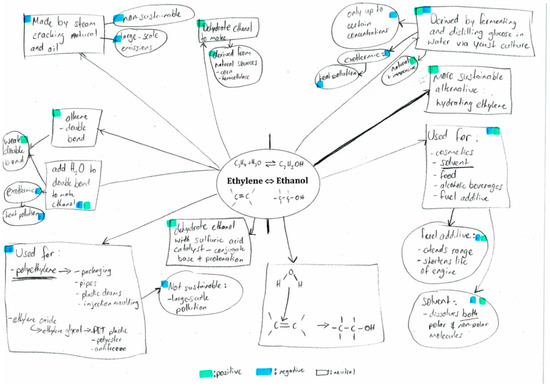 Made by steam
cracking natural
and oil
non-sustainable
large-scale
emissions
dehydrate ethanol
to make
derived from
natural sources
- corn
only up to
certain
concentrations
exothermic
heat pollution
natural
Derived by fermenting
and distilling glucose in
water via yeast culture
More sustainable
alternative:
hydrating ethylene
alkene
- double
bond
weak
double
bond
add H₂O to
double bond
to make
ethanol
exothermic
heat pollution
C₂H₄ + H₂O ⇌ C₂H₅OH
Ethylene ⇔ Ethanol
C=C
-C-C-OH
Used for:
- cosmetics
- solvent
- food
- alcoholic beverages
- fuel additive
dehydrate ethanol
with sulfuric acid
catalyst - conjugate
base + protonation
fuel additive:
- extends range
- shortens life
of engine
Used for:
- polyethylene → - packaging
- pipes
- plastic drums
- injection moulding
- ethylene oxide
→ ethylene glycol → PET plastic
- polyester
- antifreeze
Not sustainable:
- large-scale
pollution
O
H H
C=C → -C-C-OH
Solvent:
- dissolves both
polar & non-polar
molecules
:positive :negative :neutral